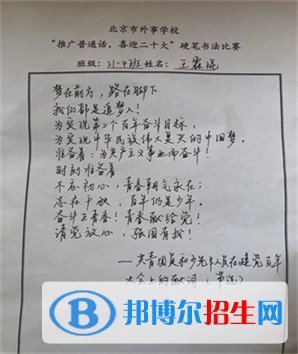 北京市外事学校
“推广普通话，喜迎二十大”硬笔书法比赛
班级：21-4班 姓名：王霖琨
梦在前方，路在脚下
我们都是追梦人！
为实现第二个百年奋斗目标，
为实现中华民族伟大复兴的中国梦。
准备着：为共产主义事业而奋斗！
时刻准备着
不忘初心，青春朝气永在；
志在千秋，百年仍是少年。
奋斗正青春！青春献给党！
请党放心，强国有我！
——共青团员和少先队员在建党百年
大会上的献词（节选）
邦博尔招生网